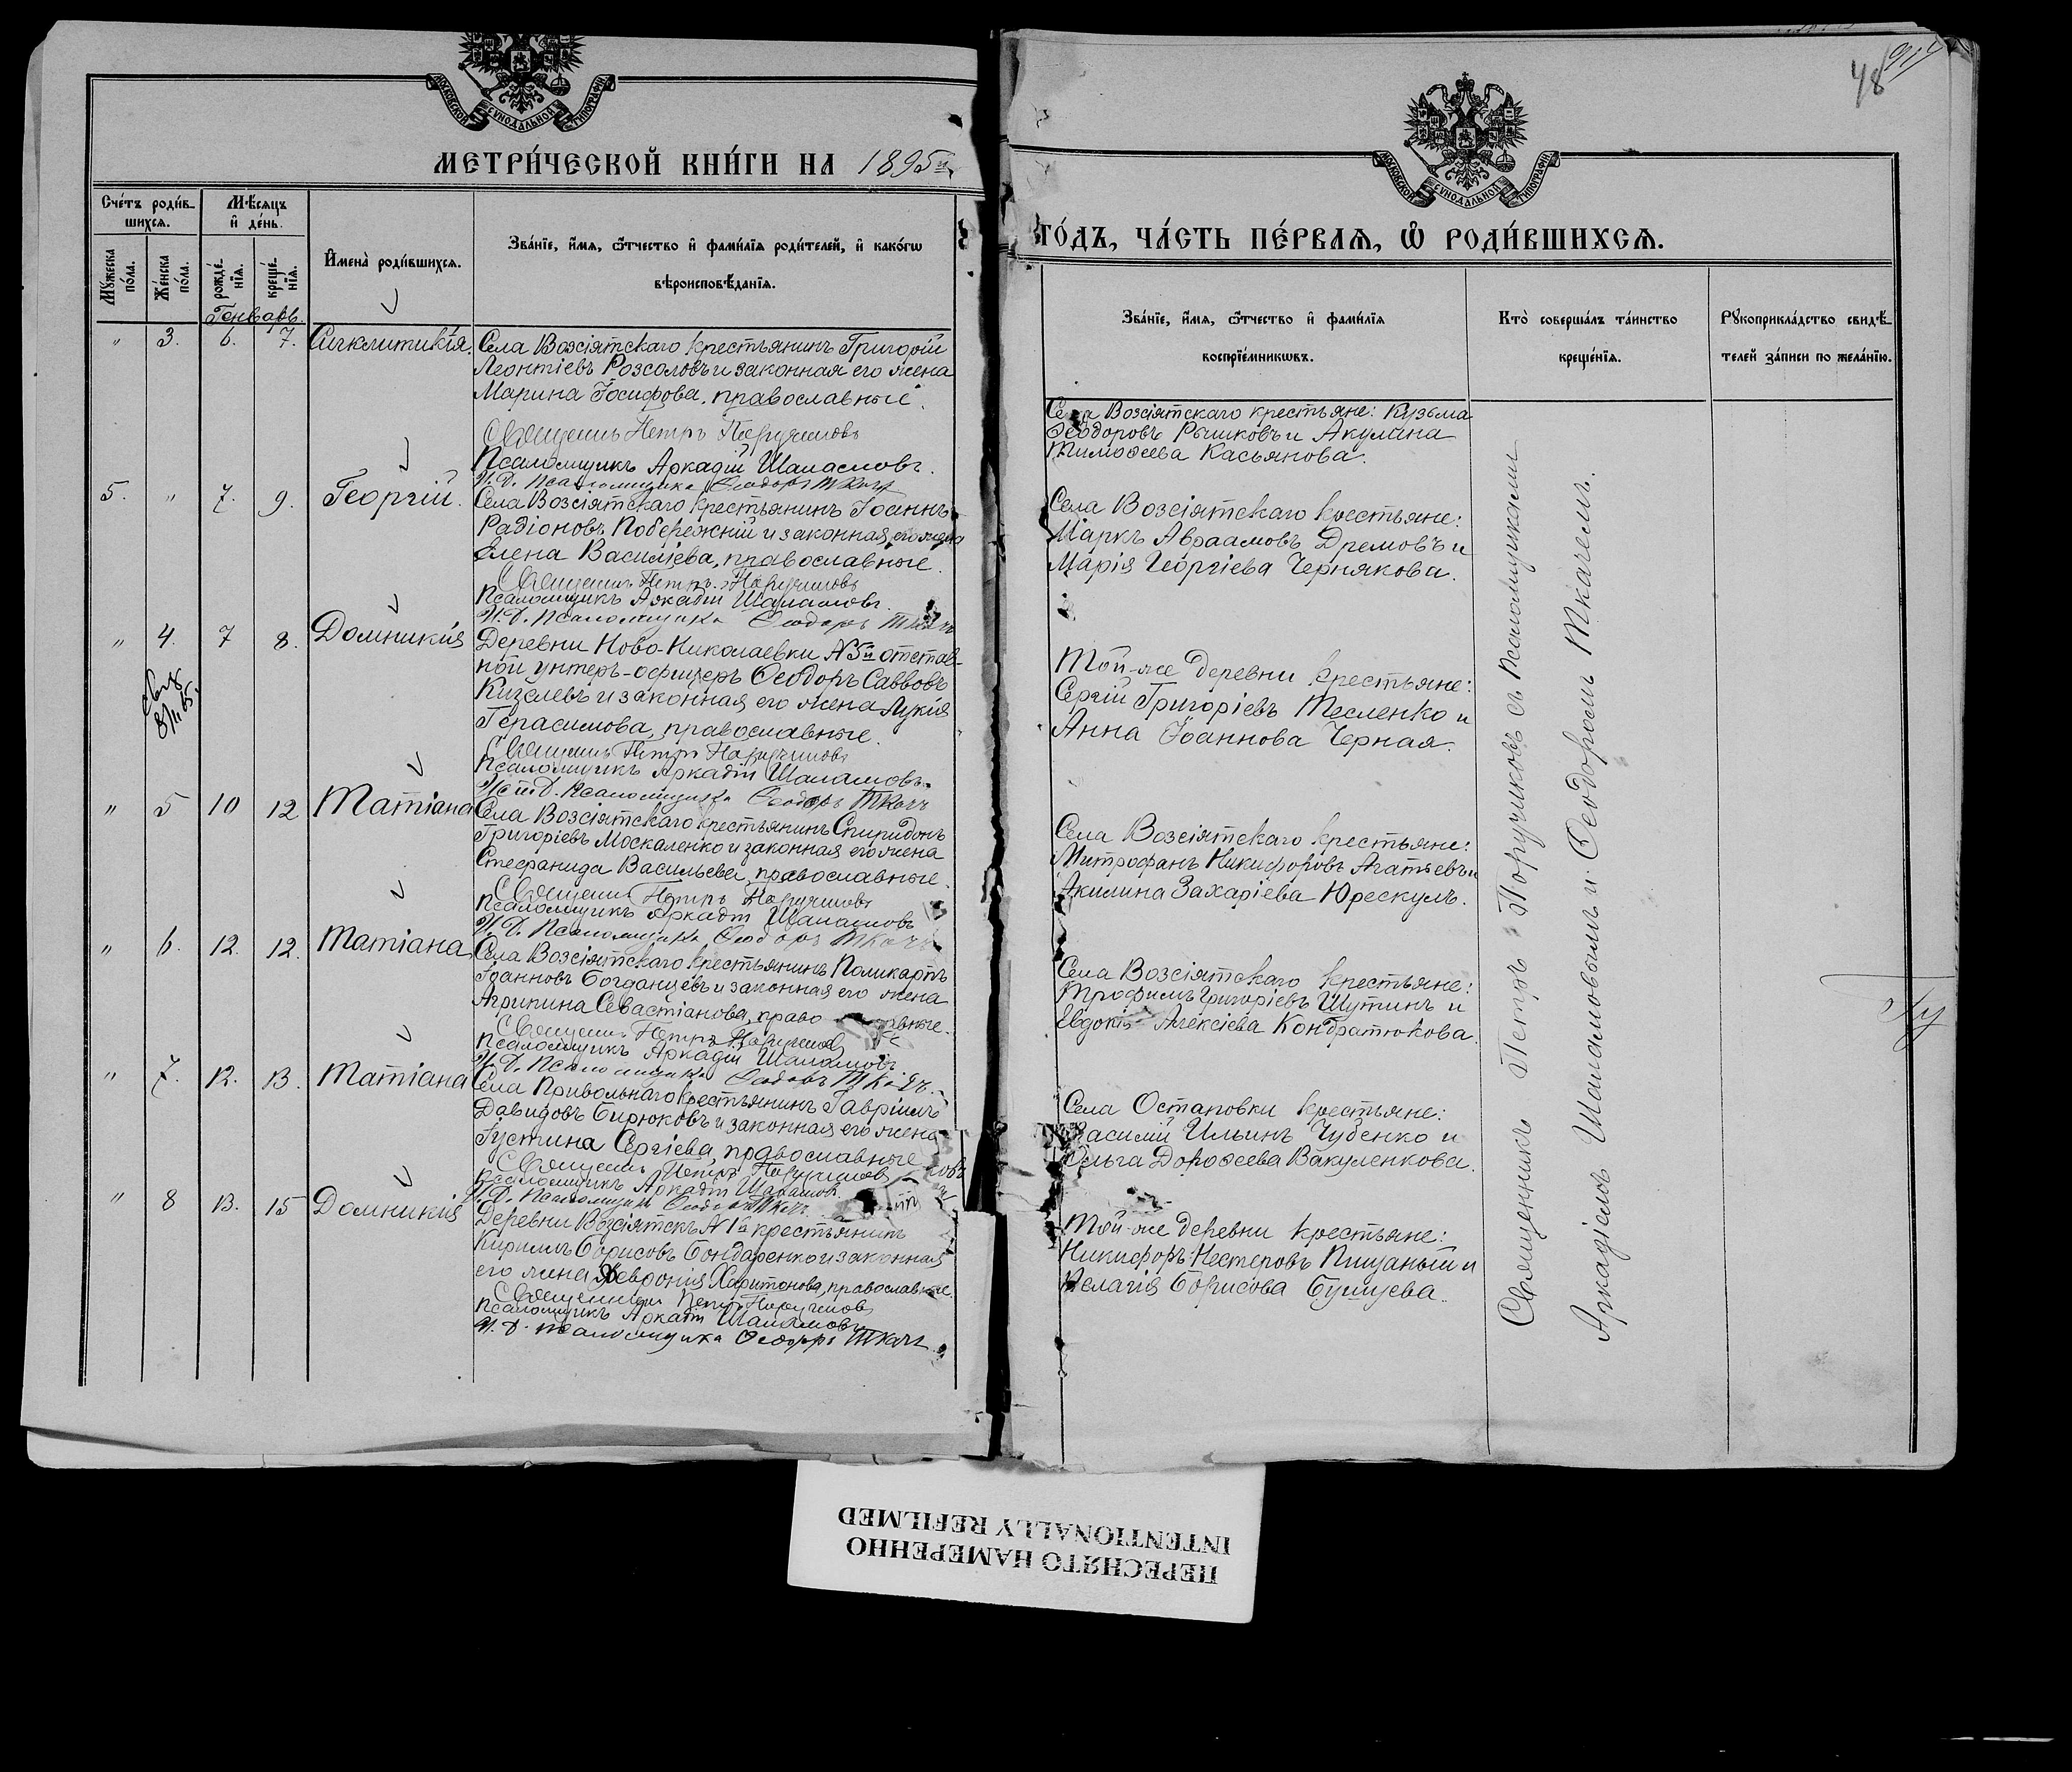 48
МОСКОВСКОЙ СѴНОДАЛЬНОЙ ТИПОГРАФІИ
МЕТРИ́ЧЕСКОЙ КНИ́ГИ НА 1895й
Сче́тъ роди́в-
шихсѧ.
Мѣ́сѧцъ
и҆ де́нь.
Мꙋ́жеска
по́ла.
Же́нска
по́ла.
рожде́-
нїѧ.
креще́-
нїѧ.
И҆мена̀ роди́вшихсѧ.
Зва́нїе, и҆́мѧ, ѻ҆́тчество и҆ фами́лїѧ роди́телей, и҆ како́гѡ
вѣроисповѣ́данїѧ.
Генварь.
" 3. 6. 7. Сигклитикія.
Села Возсіятскаго крестьянинъ Григорій
Леонтіевъ Розсоловъ и законная его жена
Марина Іосифова, православные.
Священникъ Петръ Поручиковъ
Псаломщикъ Аркадій Шаламовъ.
И. Д. Псаломщика Ѳеодоръ Ткачъ
5. " 7. 9. Георгій.
Села Возсіятскаго крестьянинъ Іоаннъ
Радіоновъ Побережній и законная его жена
Елена Василіева, православные.
Священникъ Петръ Поручиковъ
Псаломщикъ Аркадій Шаламовъ.
И. Д. Псаломщика Ѳеодоръ Ткачъ
" 4. 7 8. Домникія
Деревни Ново-Николаевки №5й отстав-
ной унтеръ-офицеръ Ѳеодоръ Саввовъ
Кизелевъ и законная его жена Лукія
Герасимова, православные.
Священникъ Петръ Поручиковъ
Псаломщикъ Аркадій Шаламовъ.
И. Д. Псаломщика Ѳеодоръ Ткачъ
" 5 10 12 Татіана
Села Возсіятскаго крестьянинъ Спиридонъ
Григоріевъ Москаленко и законная его жена
Стефанида Васильева, православные.
Священникъ Петръ Поручиковъ
Псаломщикъ Аркадій Шаламовъ
И. Д. Псаломщика Ѳеодоръ Ткачъ
" 6. 12. 12. Татіана
Села Возсіятскаго крестьянинъ Поликарпъ
Іоанновъ Богданцевъ и законная его жена
Агрипина Севастіанова, право авные.
Священникъ Петръ Поручиковъ
Псаломщикъ Аркадій Шаламовъ
И. Д. Псаломщика Ѳеодоръ Ткачъ.
" 7. 12. 13. Татіана
Села Привольнаго крестьянинъ Гавріилъ
Давидовъ Бирюковъ и законная его жена
Іустина Сергіева, православные
Священникъ Петръ Поручиковъ
Псаломщикъ Аркадій Шаламовъ
И. Д. Псаломщика Ѳеодоръ Ткачъ.
" 8 13. 15 Домникія
Деревни Возсіятскъ №1й крестьянинъ
Кириллъ Борисовъ Бондаренко и законная
его жена Ѳевронія Харитонова, православные.
Священникъ Петръ Поручиковъ
Псаломщикъ Аркадій Шаламовъ
И. Д. псаломщика Ѳеодоръ Ткачъ
МОСКОВСКОЙ СѴНОДАЛЬНОЙ ТИПОГРАФІИ
ГО́ДЪ, ЧА́СТЬ ПЕ́РВАѦ, Ѡ҆ РОДИ́ВШИХСѦ.
Зва́нїе, и҆́мѧ, ѻ҆́тчество и҆ фами́лїѧ
воспрїе́мникѡвъ.
Кто̀ соверша́лъ та́инство
креще́нїѧ.
Рꙋкоприкла́дство свидѣ́-
телей за́писи по жела́нїю.
Села Возсіятскаго крестьяне: Кузьма
Ѳеодоровъ Рышковъ и Акулина
Тимоѳеева Касьянова.
Села Возсіятскаго крестьяне:
Маркъ Авраамовъ Дремовъ и
Марія Георгіева Чернякова.
Той-же деревни крестьяне:
Сергій Григоріевъ Тесленко и
Анна Іоаннова Черная.
Села Возсіятскаго крестьяне:
Митрофанъ Никифоровъ Агатьевъ и
Акилина Захаріева Юрескулъ.
Села Возсіятскаго крестьяне:
Трофимъ Григоріевъ Шутинъ и
Евдокія Алексіева Кондратюкова.
Села Остановки крестьяне:
Василій Ильинъ Чубенко и
Ольга Дороѳеева Вакуленкова.
Той-же деревни крестьяне:
Никифоръ Нестеровъ Пищаный и
Пелагія Борисова Бушуева.
Священникъ Петръ Поручиковъ съ Псаломщиками
Аркадіемъ Шаламовымъ и Ѳеодоромъ Ткачемъ.
ПЕРЕСНЯТО НАМЕРЕННО
INTENTIONALLY REFILMED